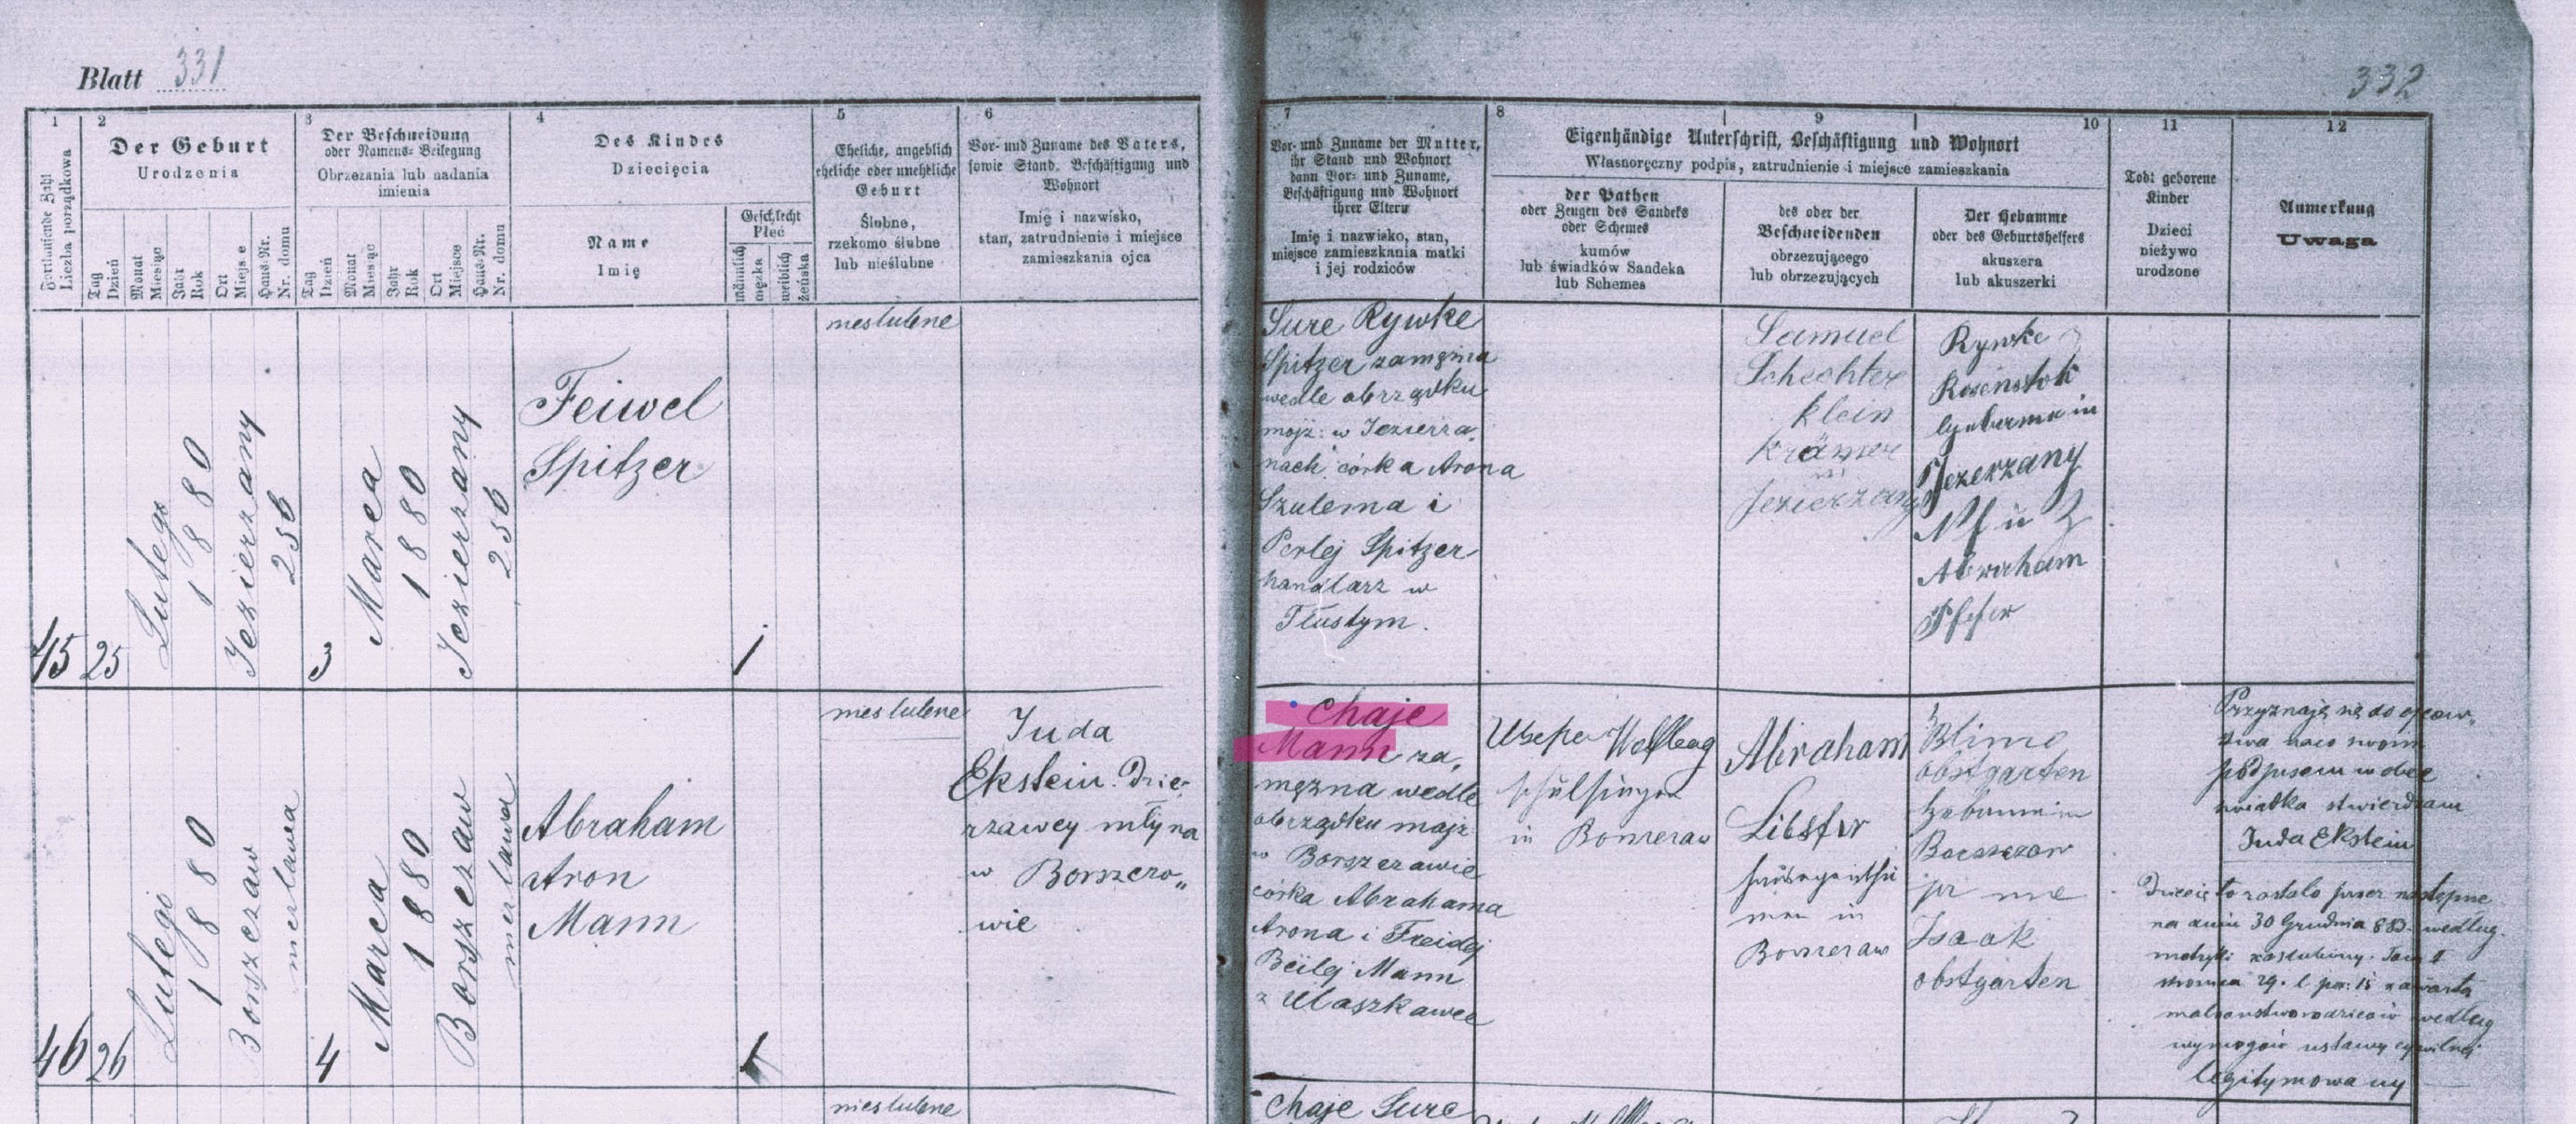 Blatt 331
332
1
2
3
4
5
6
7
8
9
10
11
12
Fortlaufende Zahl
Liczba porządkowa
Der Geburt
Urodzenia
Tag
Dzień
Monat
Miesiąc
Jahr
Rok
Ort
Miejsce
Haus-Nr.
Nr. domu
Der Beschneidung
oder Namens-Beilegung
Obrzezania lub nadania
imienia
Tag
Dzień
Monat
Miesiąc
Jahr
Rok
Ort
Miejsce
Haus-Nr.
Nr. domu
Des Kindes
Dziecięcia
Name
Imię
Geschlecht
Płeć
männlich
męzka
weiblich
żeńska
Eheliche, angeblich
eheliche oder uneheliche
Geburt
Ślubne,
rzekomo ślubne
lub nieślubne
Vor- und Zuname des Vaters,
sowie Stand, Beschäftigung und
Wohnort
Imię i nazwisko,
stan, zatrudnienie i miejsce
zamieszkania ojca
Vor- und Zuname der Mutter,
ihr Stand und Wohnort
dann Vor- und Zuname,
Beschäftigung und Wohnort
ihrer Eltern
Imię i nazwisko, stan,
miejsce zamieszkania matki
i jej rodziców
Eigenhändige Unterschrift, Beschäftigung und Wohnort
Własnoręczny podpis, zatrudnienie i miejsce zamieszkania
der Pathen
oder Zeugen des Sandeks
oder Schemes
kumów
lub świadków Sandeka
lub Schemes
des oder der
Beschneidenden
obrzezującego
lub obrzezujących
Der Hebamme
oder des Geburtshelfers
akuszera
lub akuszerki
Todt geborene
Kinder
Dzieci
nieżywo
urodzone
Anmerkung
Uwaga
45
25
Lutego
1880
Jezierzany
256
3
Marca
1880
Jezierzany
256
Feiwel
Spitzer
1
nieslubne
Sure Rywke
Spitzer zamężna
wedle obrządku
mojż: w Jezierza,
nach córka Arona
Szulema i
Perlej Spitzer
handlarz w
Tłustym.
Samuel
Schechter
klein
krämer
in
Jezierzany
Rywke
Rosenstok
in
Jezerzany
Abraham
46
26
Lutego
1880
Borszczow
4
Marca
1880
Borszczow
Abraham
Aron
Mann
1
nieslubne
Juda
Ekstein. Dzie-
rzawcy młyna
w Borszczo„
wie
Chaje
Mann za,
mężna wedle
obrządku mojż
w Borszczowie
córka Abrahama
Arona i Freidej
Beilej Mann
z Ułaszkawec
in
Abraham
Libster
in
Blime
obstgarten
Isaak
obstgarten
Przyznaję się do ojcow„
stwa
podpisem wobec
świadka stwierdzam
Juda Ekstein
Dziecię to zostało przez następne
na dniu 30 Grudnia według
zaślubiny. Tom I
29. l. por: 15 zawarte
malzenstwo rodziców według
wymogów ustawy cywilnej
legitymowany
nieslubne
Chaje Sure